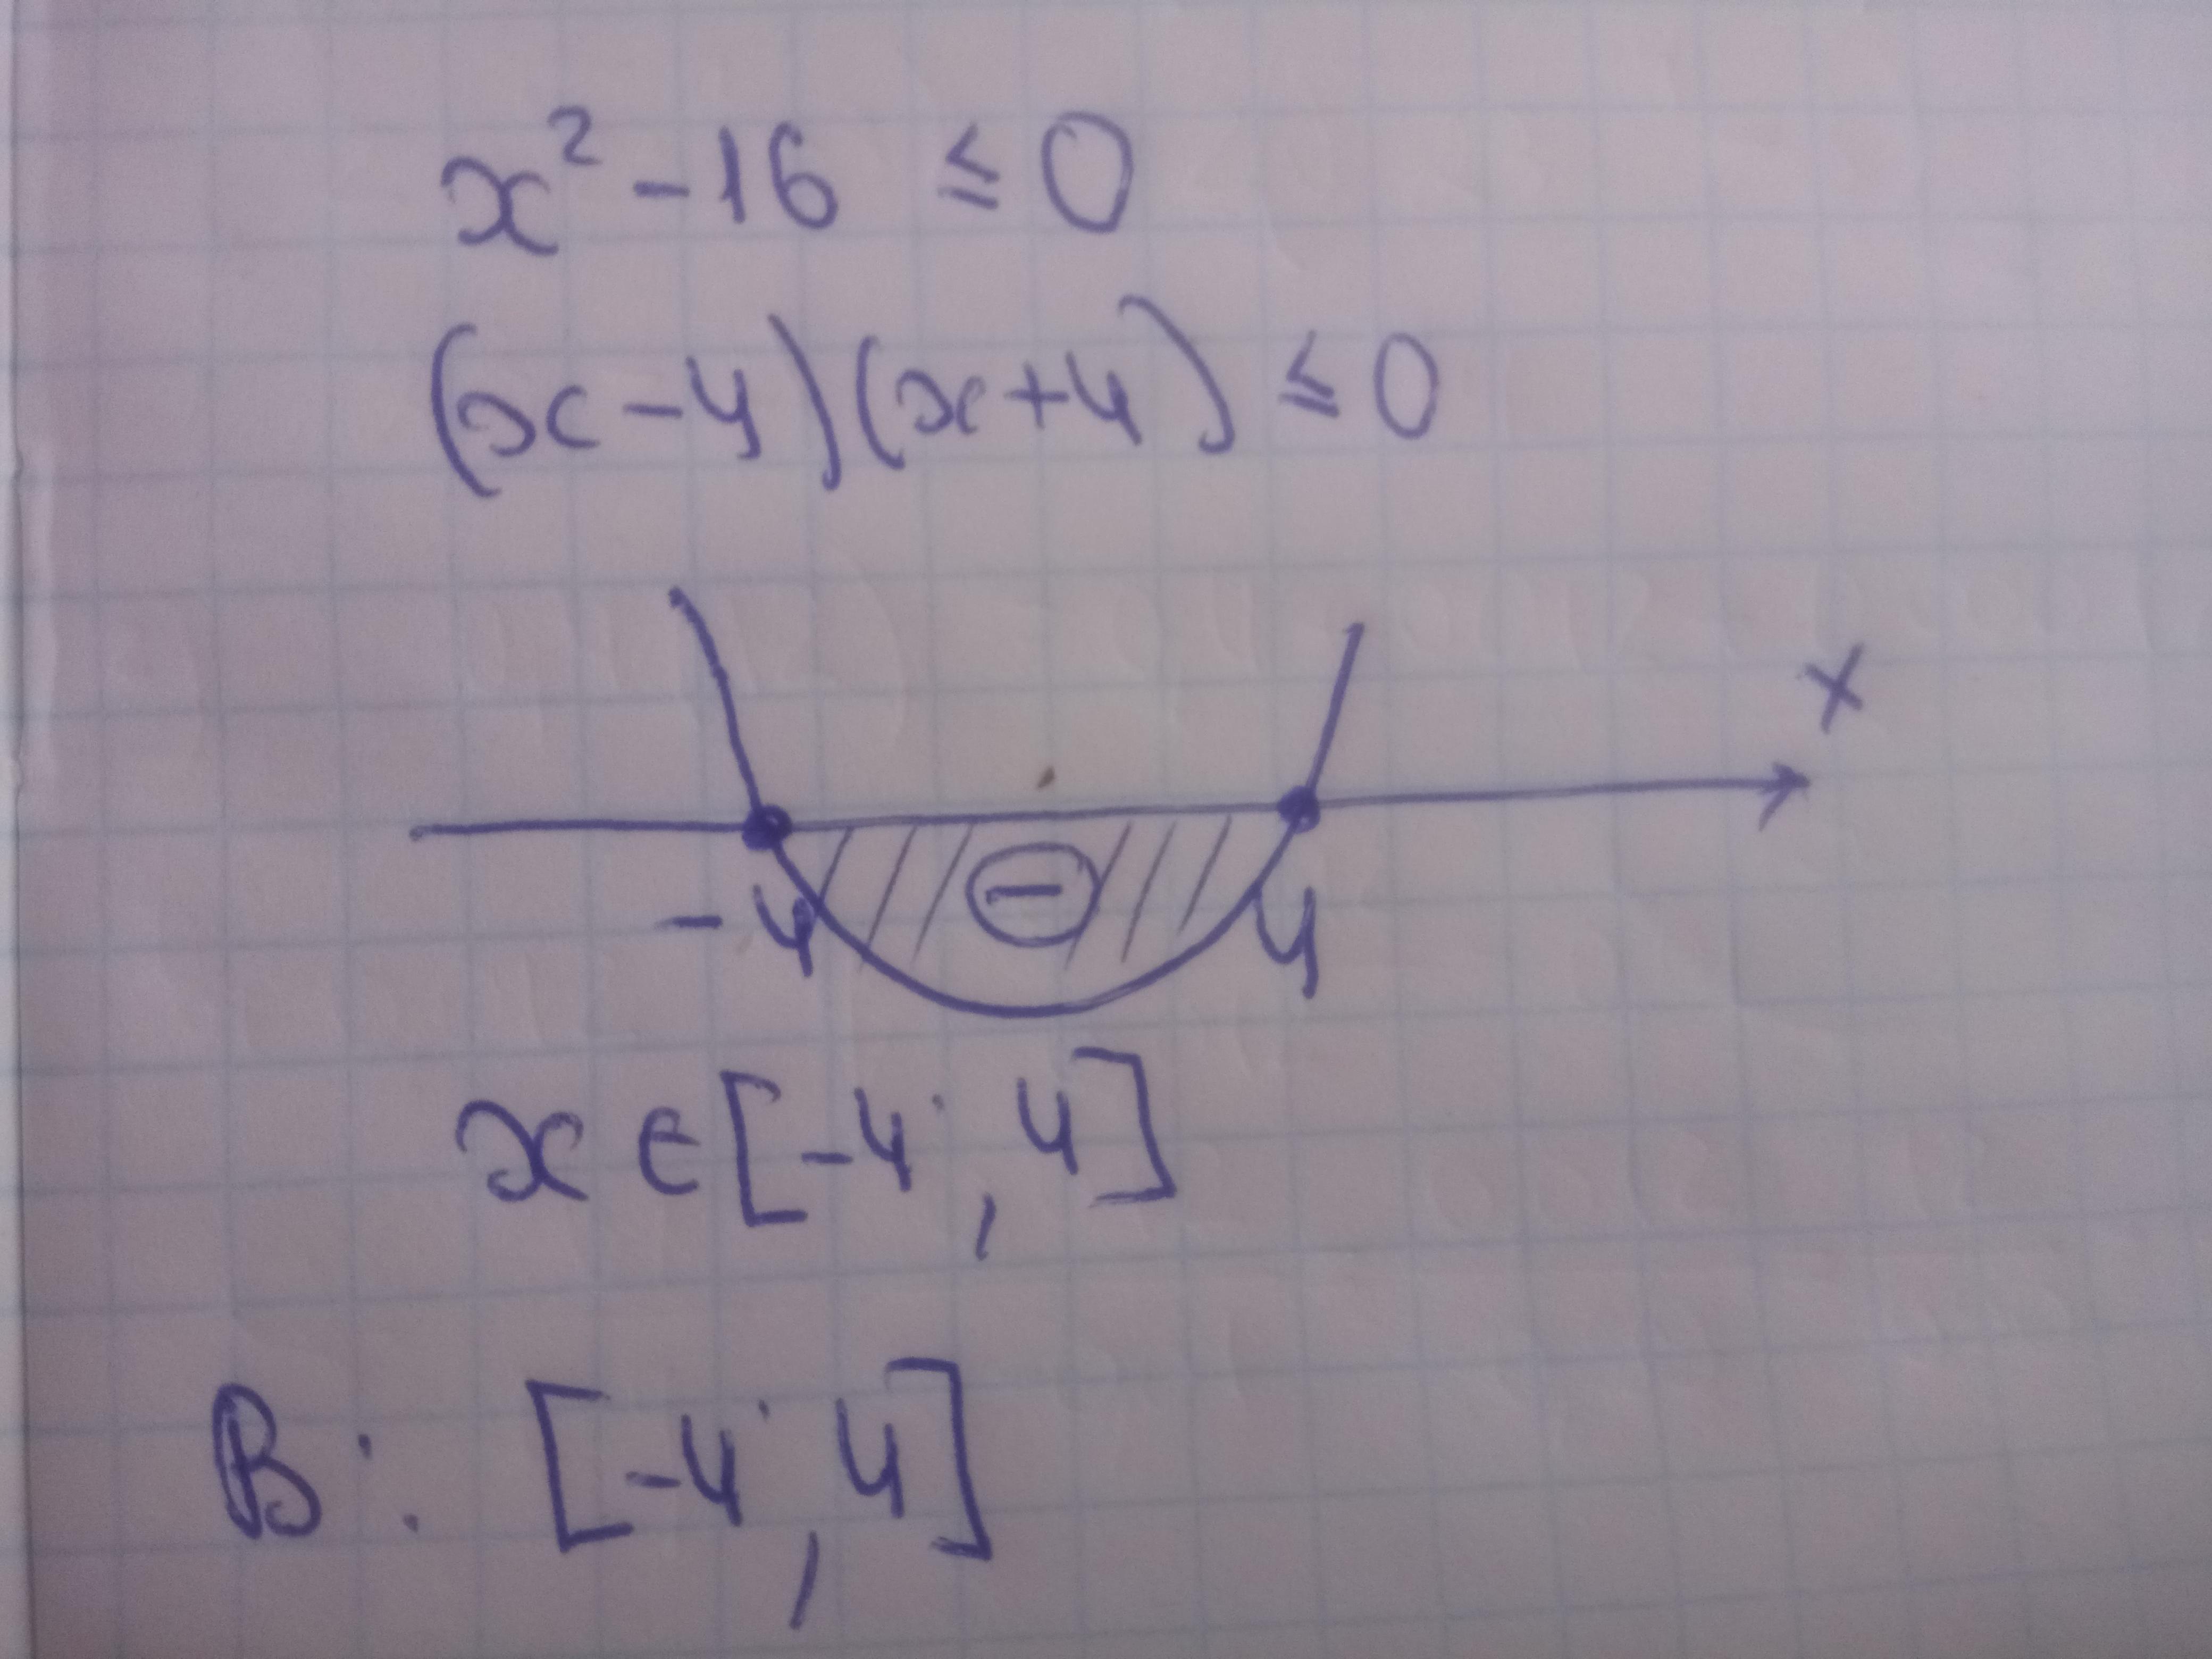 x² - 16 ≤ 0
(x - 4)(x + 4) ≤ 0
x
-4
4
x ∈ [-4; 4]
В: [-4; 4]